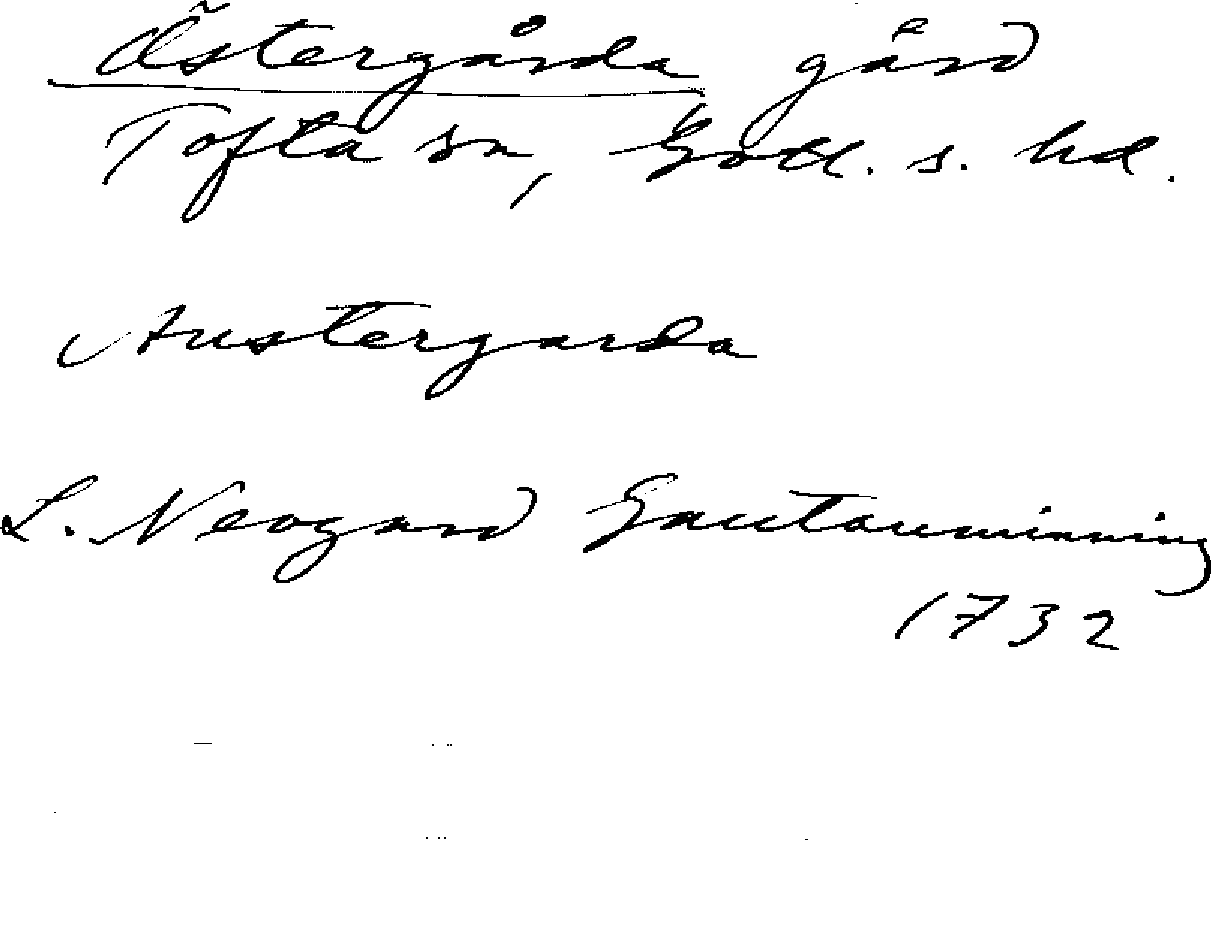 Östergårda gård
Tofta sn, Gotl. s. hd.
Austergarda
L. Neogard Gautauminning
1732